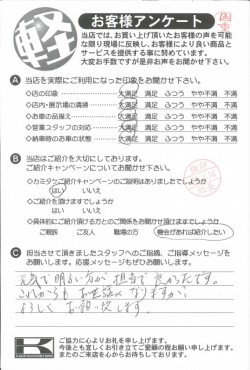 軽
お客様アンケート
当店では、お買い上げ頂いたお客様の声を可能
な限り現場に反映し、お客様により良い商品と
サービスを提供する事に努めています。
大変お手数ですが是非お声をお聞かせ下さい。
A 当店を実際にご利用になった印象をお聞かせ下さい。
◇店の印象 大満足 満足 ふつう やや不満 不満
◇店内・展示場の清掃 大満足 満足 ふつう やや不満 不満
◇お車の品揃え 大満足 満足 ふつう やや不満 不満
◇営業スタッフの対応 大満足 満足 ふつう やや不満 不満
◇納車時のお車の状態 大満足 満足 ふつう やや不満 不満
B 当店はご紹介を大切にしております。
ご紹介キャンペーンについてお聞かせ下さい。
◇カミタケご紹介キャンペーンの説明はありましたでしょうか
はい いいえ
◇ご紹介を頂けますでしょうか
はい いいえ
◇具体的にご紹介頂ける方とのご関係をお聞かせ頂けますでしょうか
ご親族 ご友人 職場の方 機会があれば紹介したい
C 担当させて頂きましたスタッフへのご指摘、ご指導メッセージを
お願いします。応援メッセージもぜひお願いします。
元気で明るい方が担当で良かったです。
これからもお世話になりますが、
よろしくお願い致します。
K
ご協力に心よりお礼を申し上げます。
今後とも宜しくお引き立てご愛顧の程お願い申し上げます。
またのご来店を心からお待ちしております。